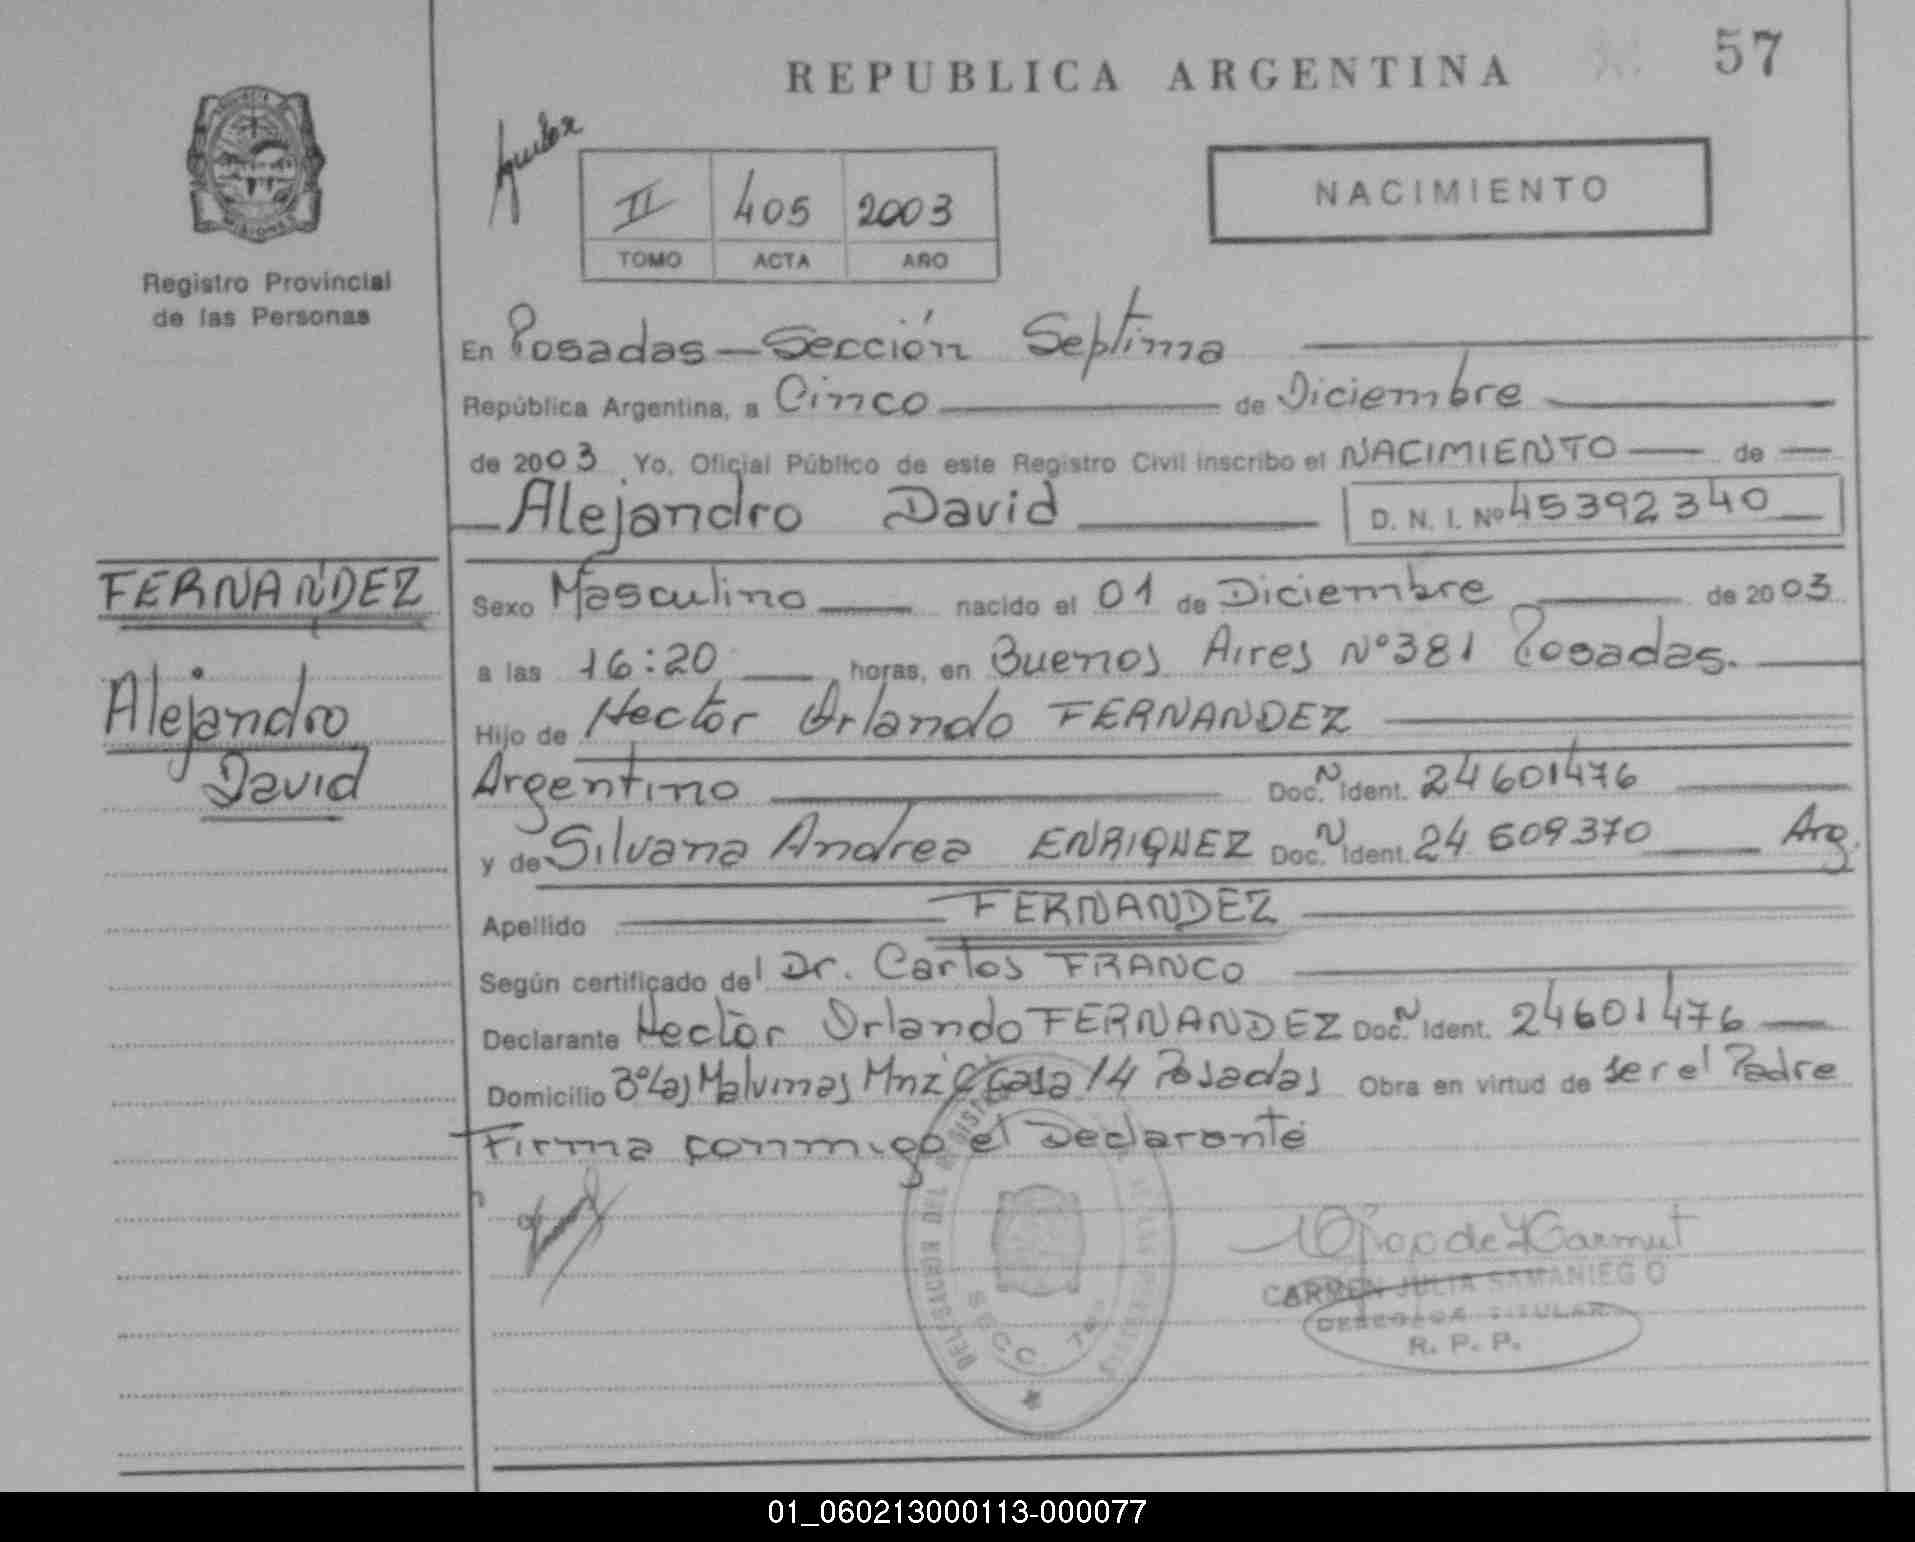 REPUBLICA ARGENTINA
57
II 405 2003
TOMO ACTA AÑO
NACIMIENTO
Registro Provincial
de las Personas
En Posadas — Sección Septima
República Argentina, a Cinco de Diciembre
de 2003 Yo, Oficial Público de este Registro Civil inscribo el NACIMIENTO de
Alejandro David D. N. I. Nº 45392340
FERNANDEZ
Alejandro
David
Sexo Masculino nacido el 01 de Diciembre de 2003
a las 16:20 horas, en Buenos Aires Nº 381 Posadas.
Hijo de Hector Orlando FERNANDEZ
Argentino Doc. N Ident. 24601476
y de Silvana Andrea ENRIQUEZ Doc. N Ident. 24 609370 Arg.
Apellido FERNANDEZ
Según certificado del Dr. Carlos FRANCO
Declarante Hector Orlando FERNANDEZ Doc. N Ident. 24601476
Domicilio Bº Las Malvinas Mnz C casa 14 Posadas Obra en virtud de ser el Padre
Firma conmigo el Declarante
CARMEN JULIA SAMANIEGO
TITULAR
R. P. P.
DELEGACION DEL
SECC. 7ª
01_060213000113-000077